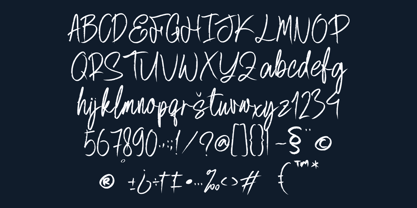 ABCDEFGHIJKLMNOP
QRSTUVWXYZabcdefg
hijklmnopqrštuvwxyz1234
567890.,:;!/?@[]{}~§¨©
®±¿÷†‡•…‰<>#£™*